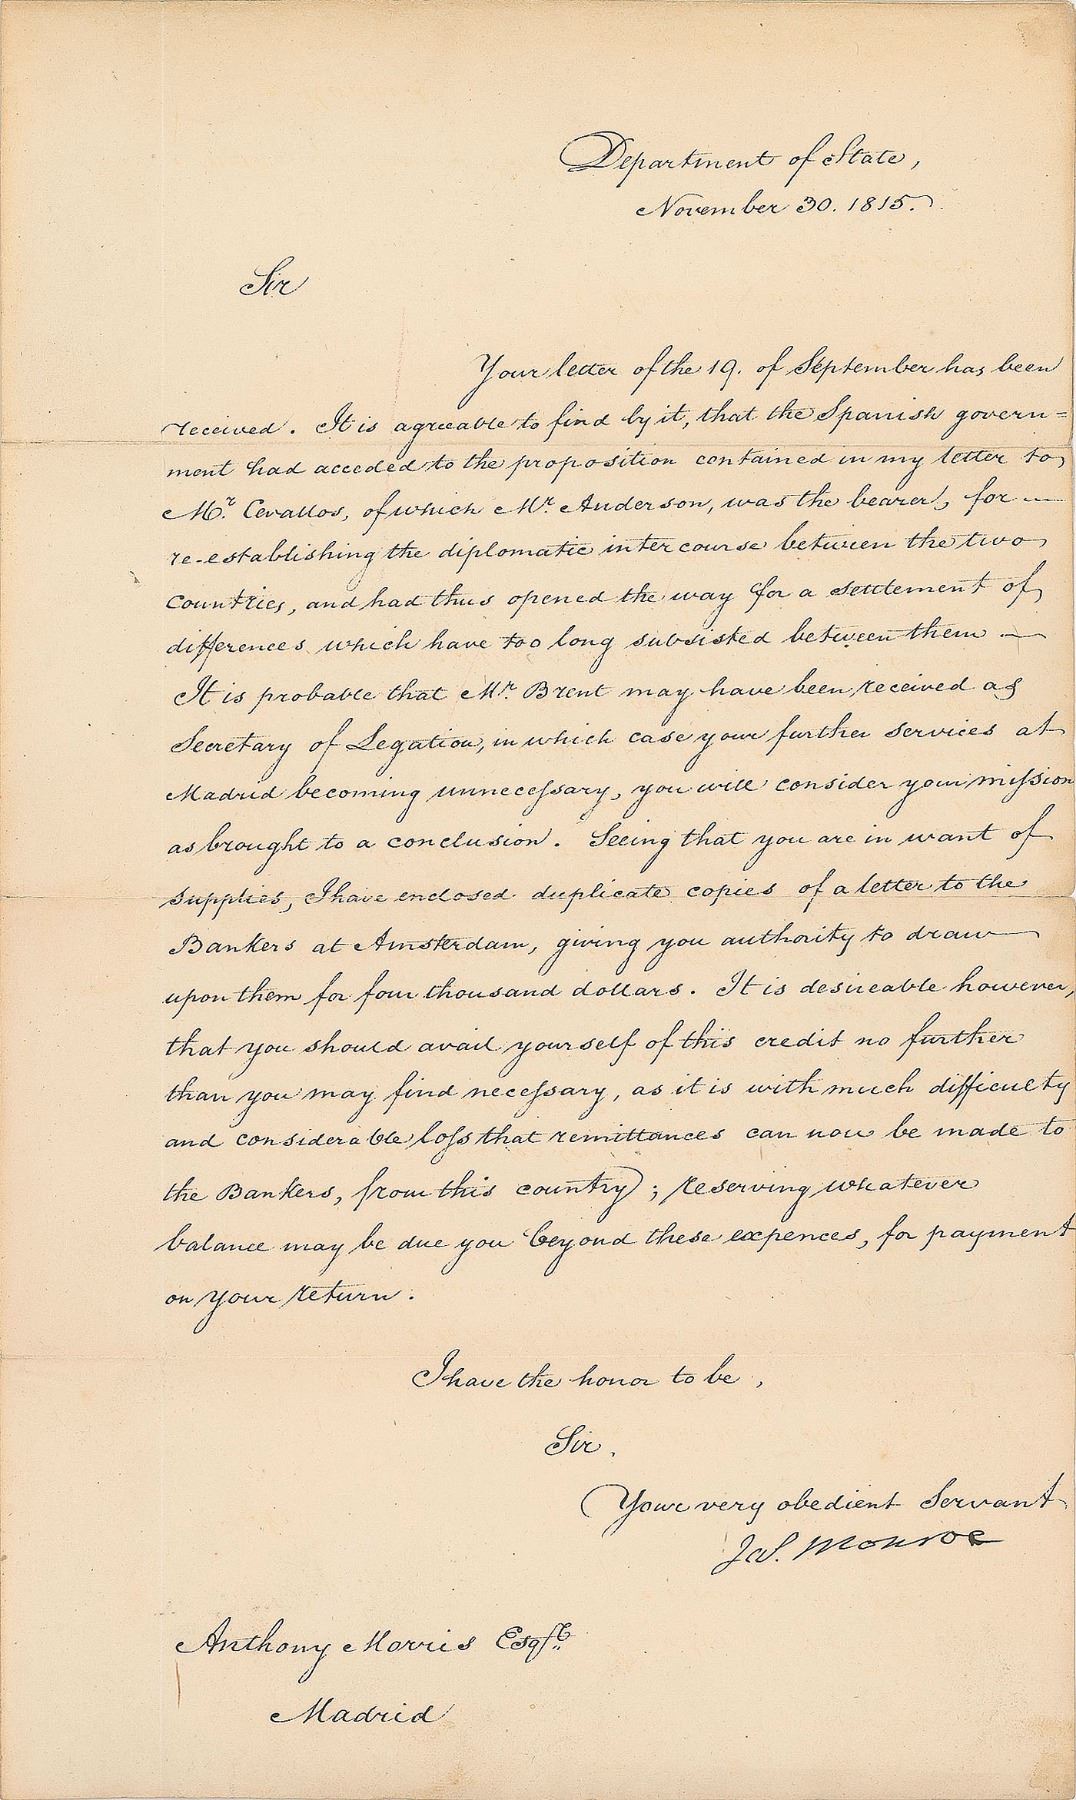 Department of State,
November 30. 1815.
Sir
Your letter of the 19. of September has been
received. It is agreeable to find by it, that the Spanish govern=
ment had acceded to the proposition contained in my letter to
Mr. Cevallos, of which Mr. Anderson, was the bearer, for —
re-establishing the diplomatic intercourse between the two
Countries, and had thus opened the way for a settlement of
differences which have too long subsisted between them —
It is probable that Mr. Brent may have been received as
Secretary of Legation, in which case your further services at
Madrid becoming unnecessary, you will consider your mission
as brought to a conclusion. Seeing that you are in want of
supplies, I have enclosed duplicate copies of a letter to the
Bankers at Amsterdam, giving you authority to draw
upon them for four thousand dollars. It is desireable however,
that you should avail yourself of this credit no further
than you may find necessary, as it is with much difficulty
and considerable loss that remittances can now be made to
the Bankers, from this country; reserving whatever
balance may be due you beyond these expences, for payment
on your return.
I have the honor to be,
Sir.
Your very obedient Servant
Jas. Monroe
Anthony Morris Esqre.
Madrid